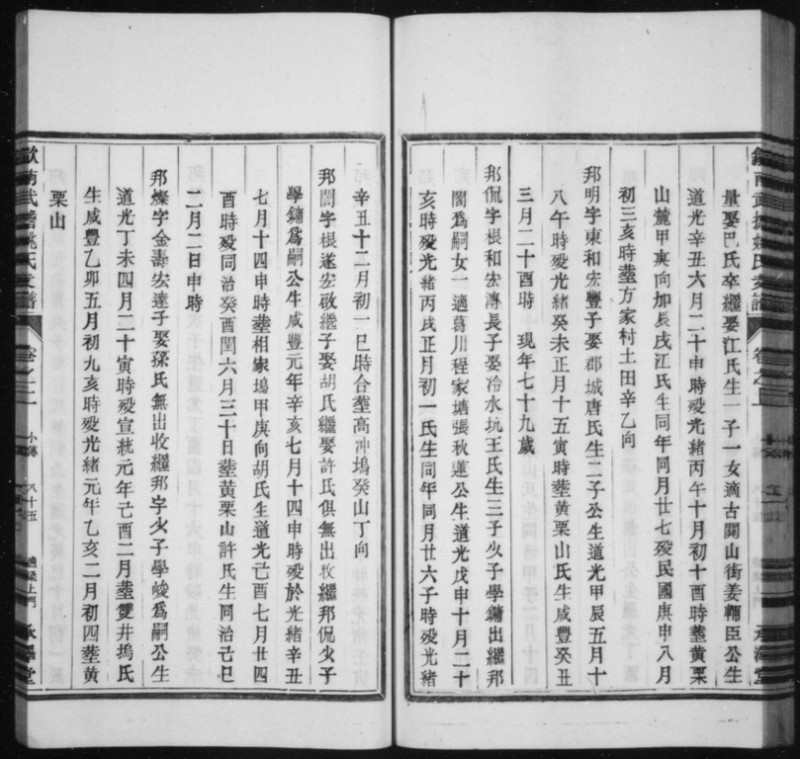 量娶巴氏卒繼娶江氏生一子一女適古關山街姜輔臣公生
道光辛丑六月二十申時歿光緒丙午十月初十酉時塟黄栗
山麓甲寅向加辰戌江氏生同年同月廿七歿民國庚申八月
初三亥時塟方家村土田辛乙向
邦明字東和宏豐子娶郡城唐氏生二子公生道光甲辰五月十
八午時歿光緒癸未正月十五寅時塟黄栗山氏生咸豐癸丑
三月二十酉時 現年七十九歲
邦侃字根和宏溥長子娶冷水坑王氏生三子少子學鏞出繼邦
誾爲嗣女一適葛川程家塘張秋蓮公生道光戊申十月二十
亥時歿光緒丙戌正月初一氏生同年同月廿六子時歿光緒
辛丑十二月初一巳時合塟高冲塢癸山丁向
邦誾字根遂宏敬繼子娶胡氏繼娶許氏俱無出收繼邦侃少子
學鏞爲嗣公生咸豐元年辛亥七月十四申時歿於光緒辛丑
七月十四申時塟相家塢甲庚向胡氏生道光己酉七月廿四
酉時歿同治癸酉閏六月三十日塟黄栗山許氏生同治己巳
二月二日申時
邦燦字金壽宏達子娶孫氏無出收繼邦字火子學峻爲嗣公生
道光丁未四月二十寅時歿宣統元年己酉二月塟雙井塢氏
生咸豐乙卯五月初九亥時歿光緒元年乙亥二月初四塟黄
栗山
歙南武擔姚氏支譜 卷之二 小溝 八十五 承澤堂